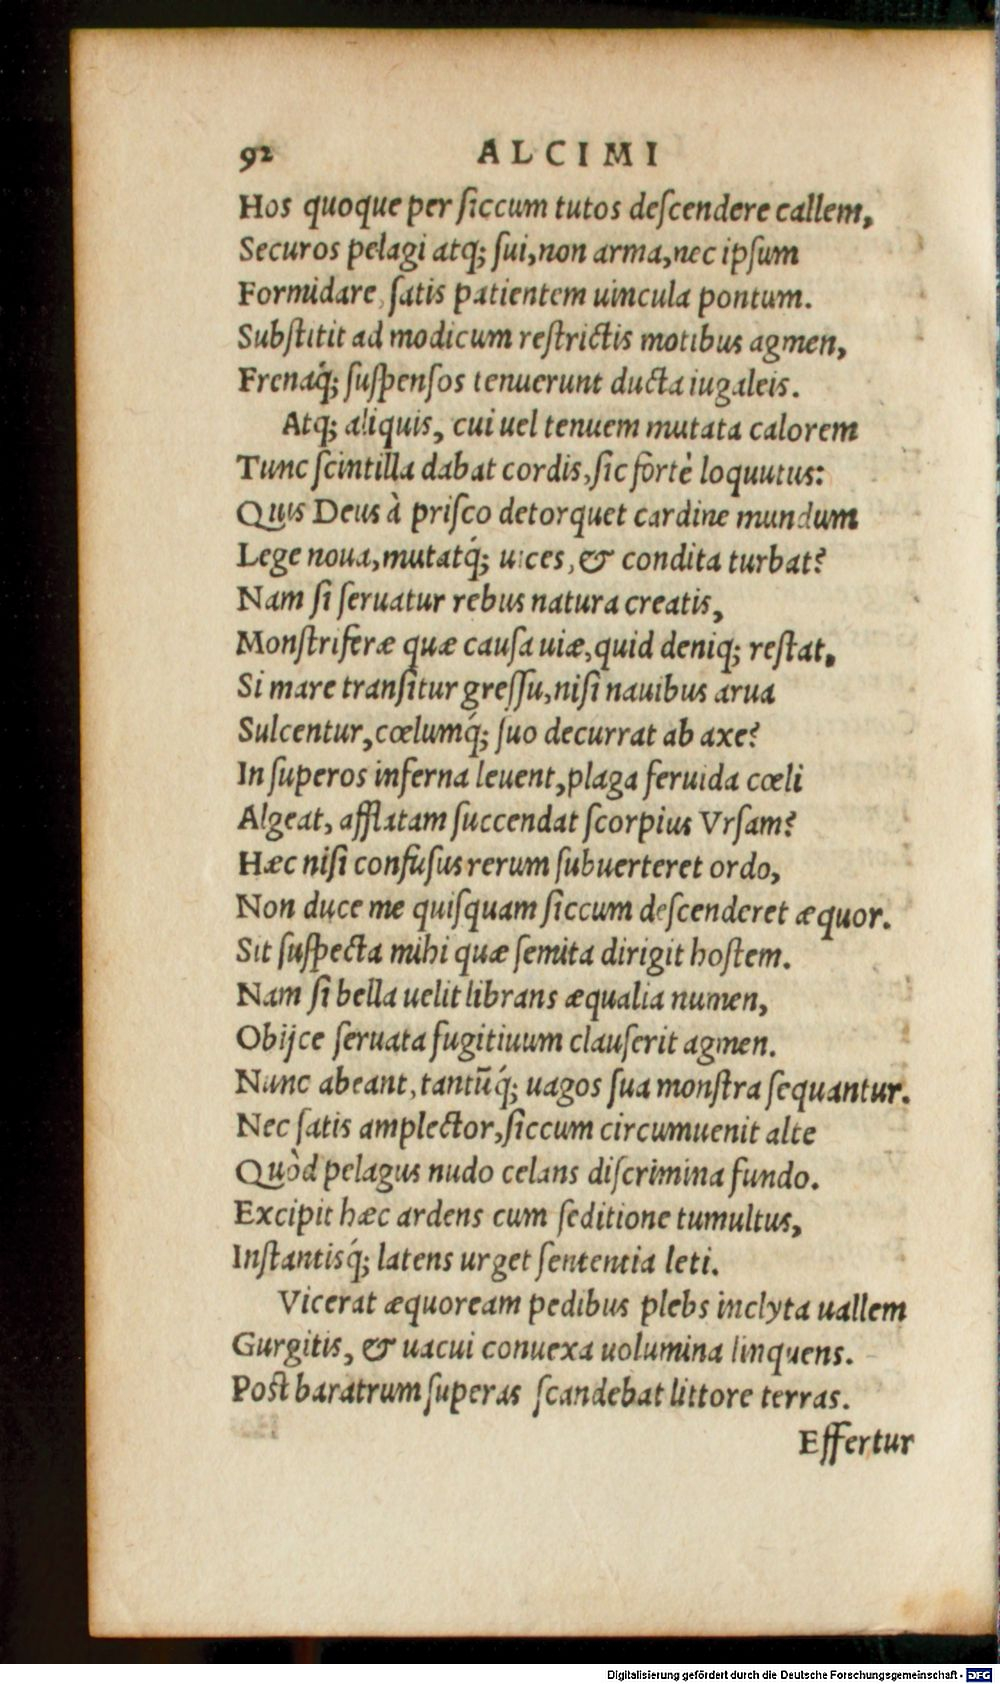 92 ALCIMI
Hos quoque per ſiccum tutos deſcendere callem,
Securos pelagi atq; ſui, non arma, nec ipſum
Formidare, ſatis patientem uincula pontum.
Subſtitit ad modicum reſtrictis motibus agmen,
Frenaq́; ſuſpenſos tenuerunt ducta iugaleis.
Atq; aliquis, cui uel tenuem mutata calorem
Tunc ſcintilla dabat cordis, ſic fortè loquutus:
Quis Deus à priſco detorquet cardine mundum
Lege noua, mutatq́; uices, & condita turbat?
Nam ſi ſeruatur rebus natura creatis,
Monſtriferæ quæ cauſa uiæ, quid deniq; reſtat,
Si mare tranſitur greſſu, niſi nauibus arua
Sulcentur, cœlumq́; ſuo decurrat ab axe?
In ſuperos inferna leuent, plaga feruida cœli
Algeat, afflatam ſuccendat ſcorpius Vrſam?
Hæc niſi confuſus rerum ſubuerteret ordo,
Non duce me quiſquam ſiccum deſcenderet æquor.
Sit ſuſpecta mihi quæ ſemita dirigit hoſtem.
Nam ſi bella uelit librans æqualia numen,
Obijce ſeruata fugitiuum clauſerit agmen.
Nunc abeant, tantūq́; uagos ſua monſtra ſequantur.
Nec ſatis amplector, ſiccum circumuenit alte
Quòd pelagus nudo celans diſcrimina fundo.
Excipit hæc ardens cum ſeditione tumultus,
Inſtantisq́; latens urget ſententia leti.
Vicerat æquoream pedibus plebs inclyta uallem
Gurgitis, & uacui conuexa uolumina linquens.
Poſt baratrum ſuperas ſcandebat littore terras.
Effertur
Digitalisierung gefördert durch die Deutsche Forschungsgemeinschaft - DFG